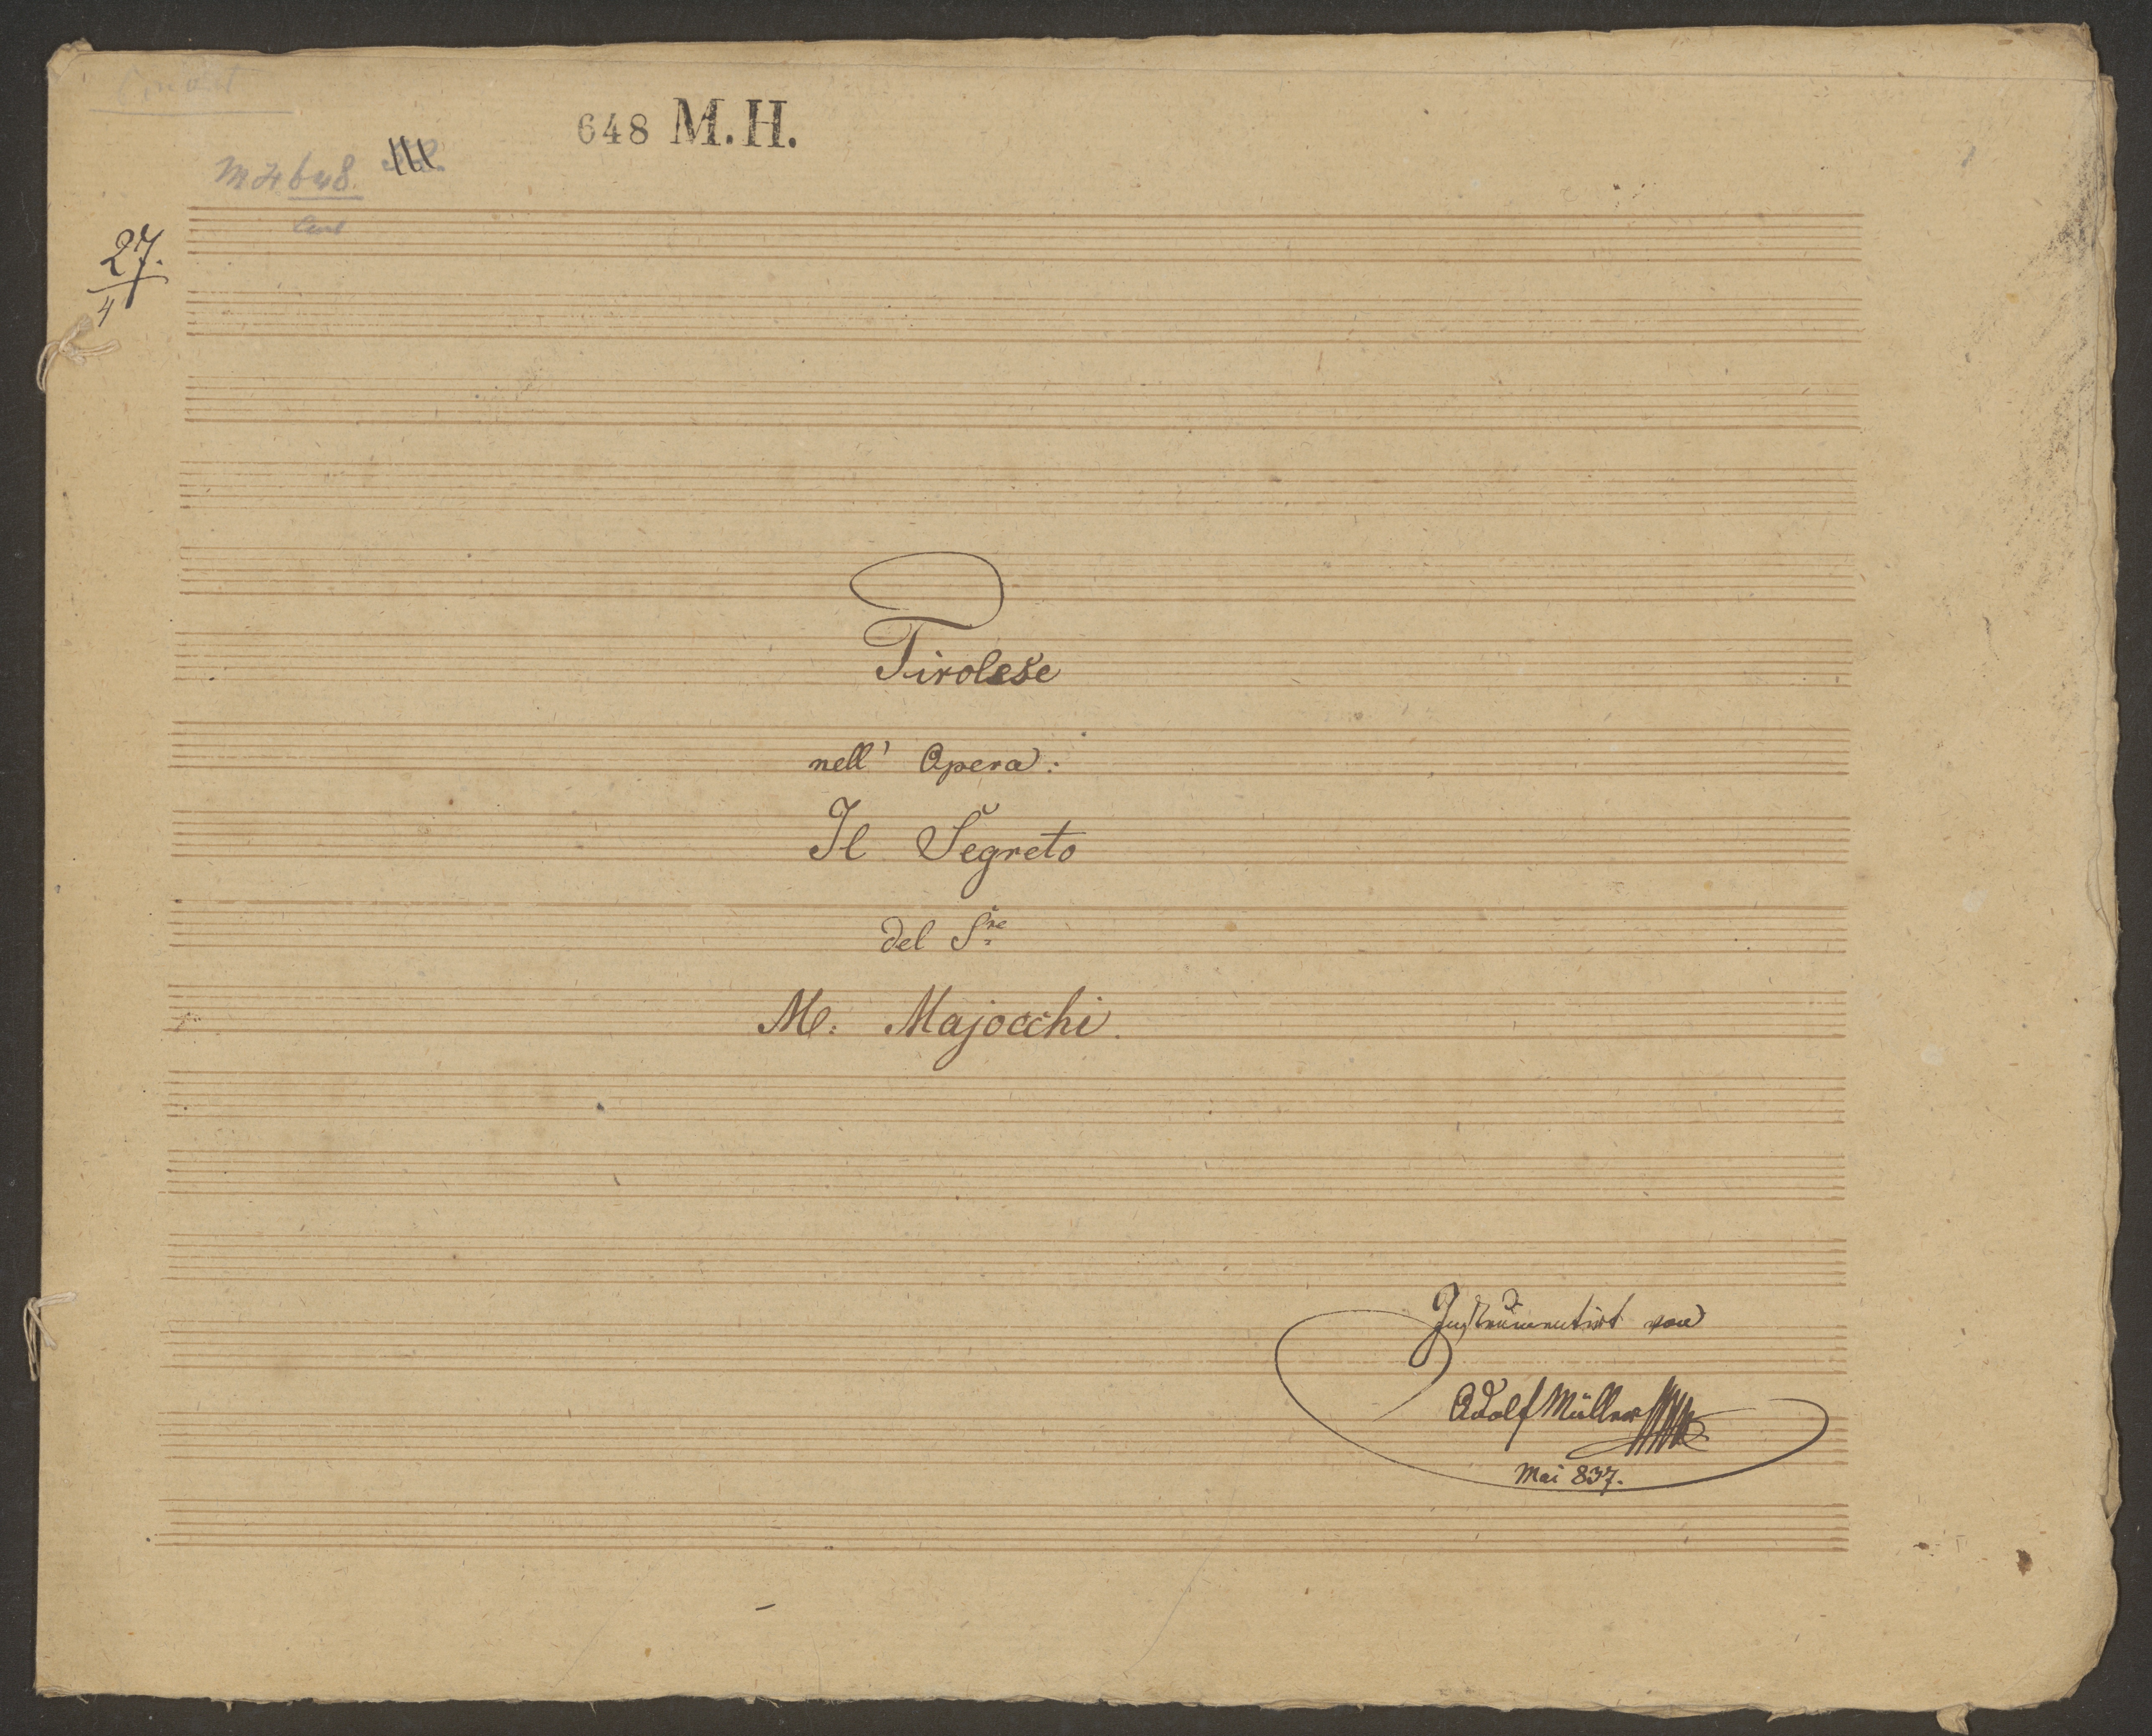 648 M.H.
MH 648.
27.
4
Tirolese
nell' Opera:
Il Segreto
del Sre
M: Majocchi.
Instrumentirt von
Adolf Müller
Mai 837.